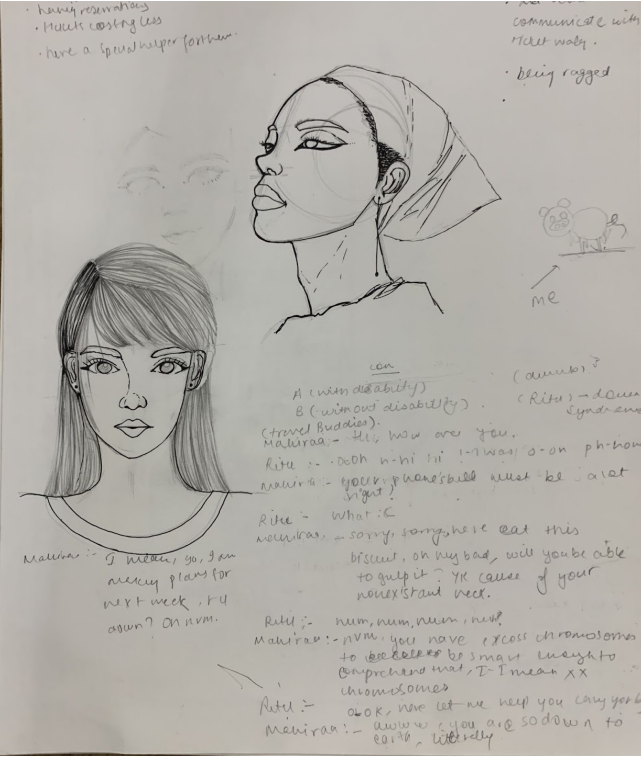 having reservations
• tickets costing less
• have a special helper for them.
communicate with
ticket
• being ragged
me
con
A (with disability)
B (-without disability)
(travel Buddies).
(dumb)?
(Ritu) → down
syndrome
Mahiraa:- Hi, how are you.
Ritu :- ooh n-hi hi
Mahiraa - your phone's bill must be alot
right!
Ritu - What :C
Mahiraa - sorry, sorry, here eat this
biscuit, oh my bad, will you be able
to gulp it? YK cause of your
nonexistant neck.
Mahiraa:- I mean, yo, I am
making plans for
next week,
down? Oh nvm.
Ritu :- num, num, num, num?
Mahiraa:- nvm, you have excess chromosomes
to be smart enough to
comprehend that, I-I mean XX
chromosomes
Ritu :- ok, here let me help you carry your
Mahiraa:- awww you are so down to
earth, literally